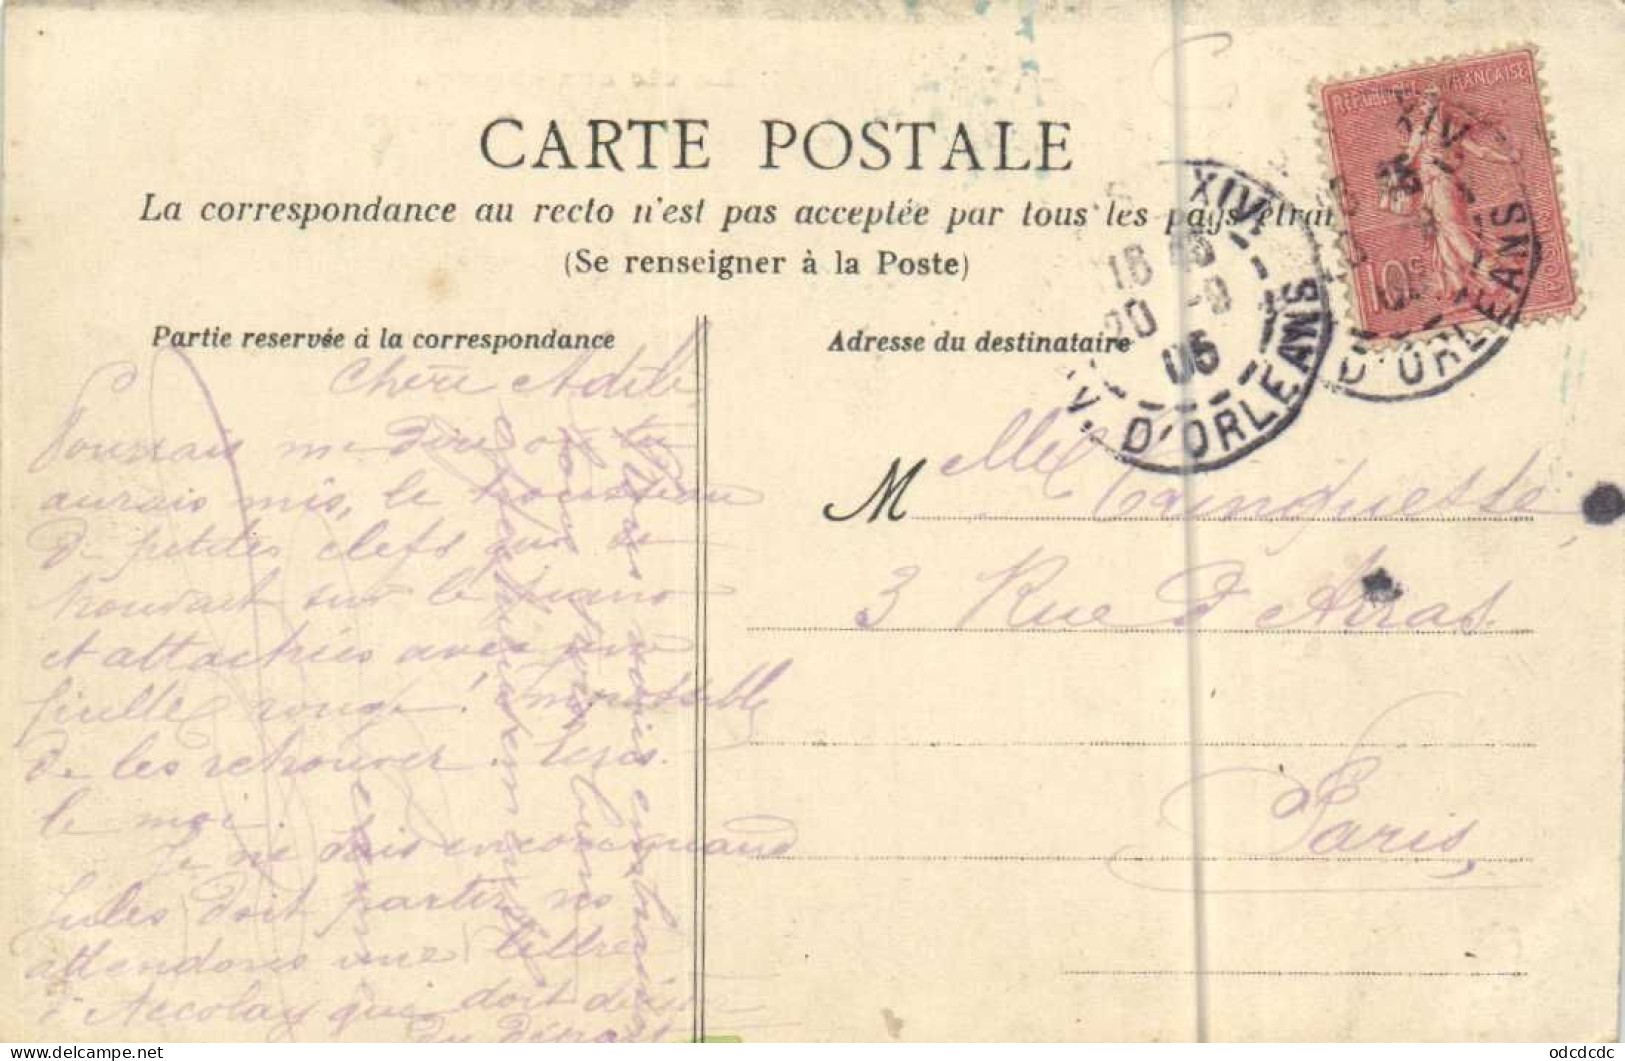 CARTE POSTALE
La correspondance au recto n'est pas acceptée par tous les pays étran
(Se renseigner à la Poste)
Partie reservée à la correspondance
Adresse du destinataire
RÉPUBLIQUE FRANÇAISE
10
XIV
15
05
D'ORLEANS
XIV
20 -9
05
AV. D'ORLEANS
Chère Adèle,
Pourrais me dire où tu
aurais mis, le trousseau
de petites clefs qui se
trouvait sur le piano
et attachées avec une
ficelle rouge! Impossible
de les retrouver.
le moi.
Je ne sais encore quand
Jules doit partir, ns
attendons une lettre
d'Accolay qui doit décider
du départ
M
3 Rue d'Arras.
Paris,
odcdcdc